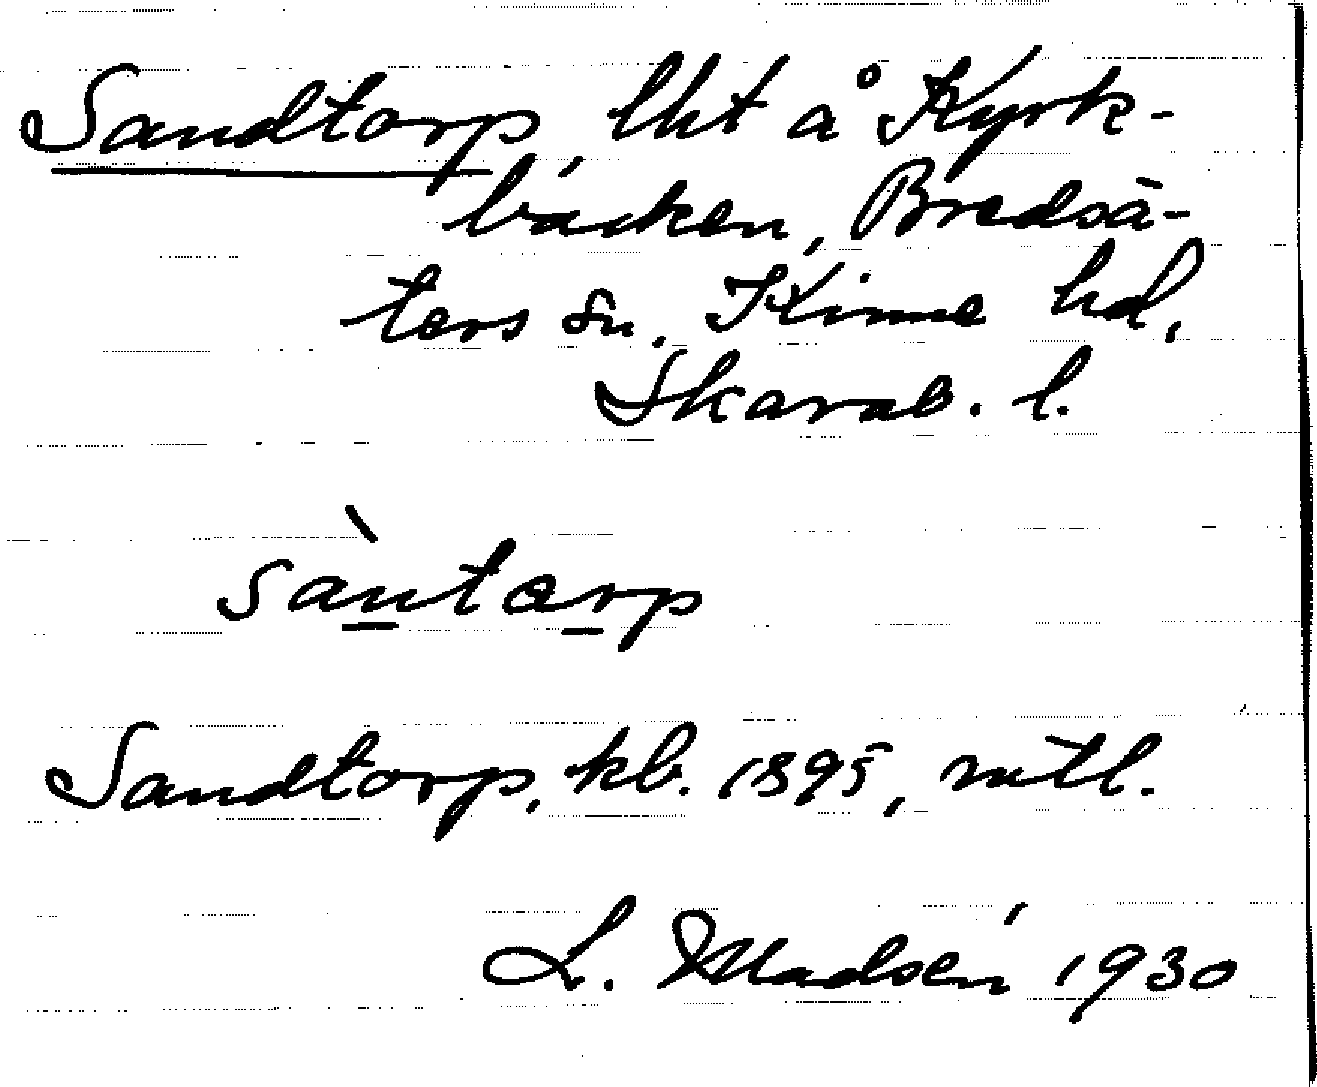 Sandtorp, lht å Kyrk-
backen, Bredsä-
ters sn, Kinne hd,
Skarab. l.
sàntarp
Sandtorp, kb. 1895, mtl.
L. Madsén 1930